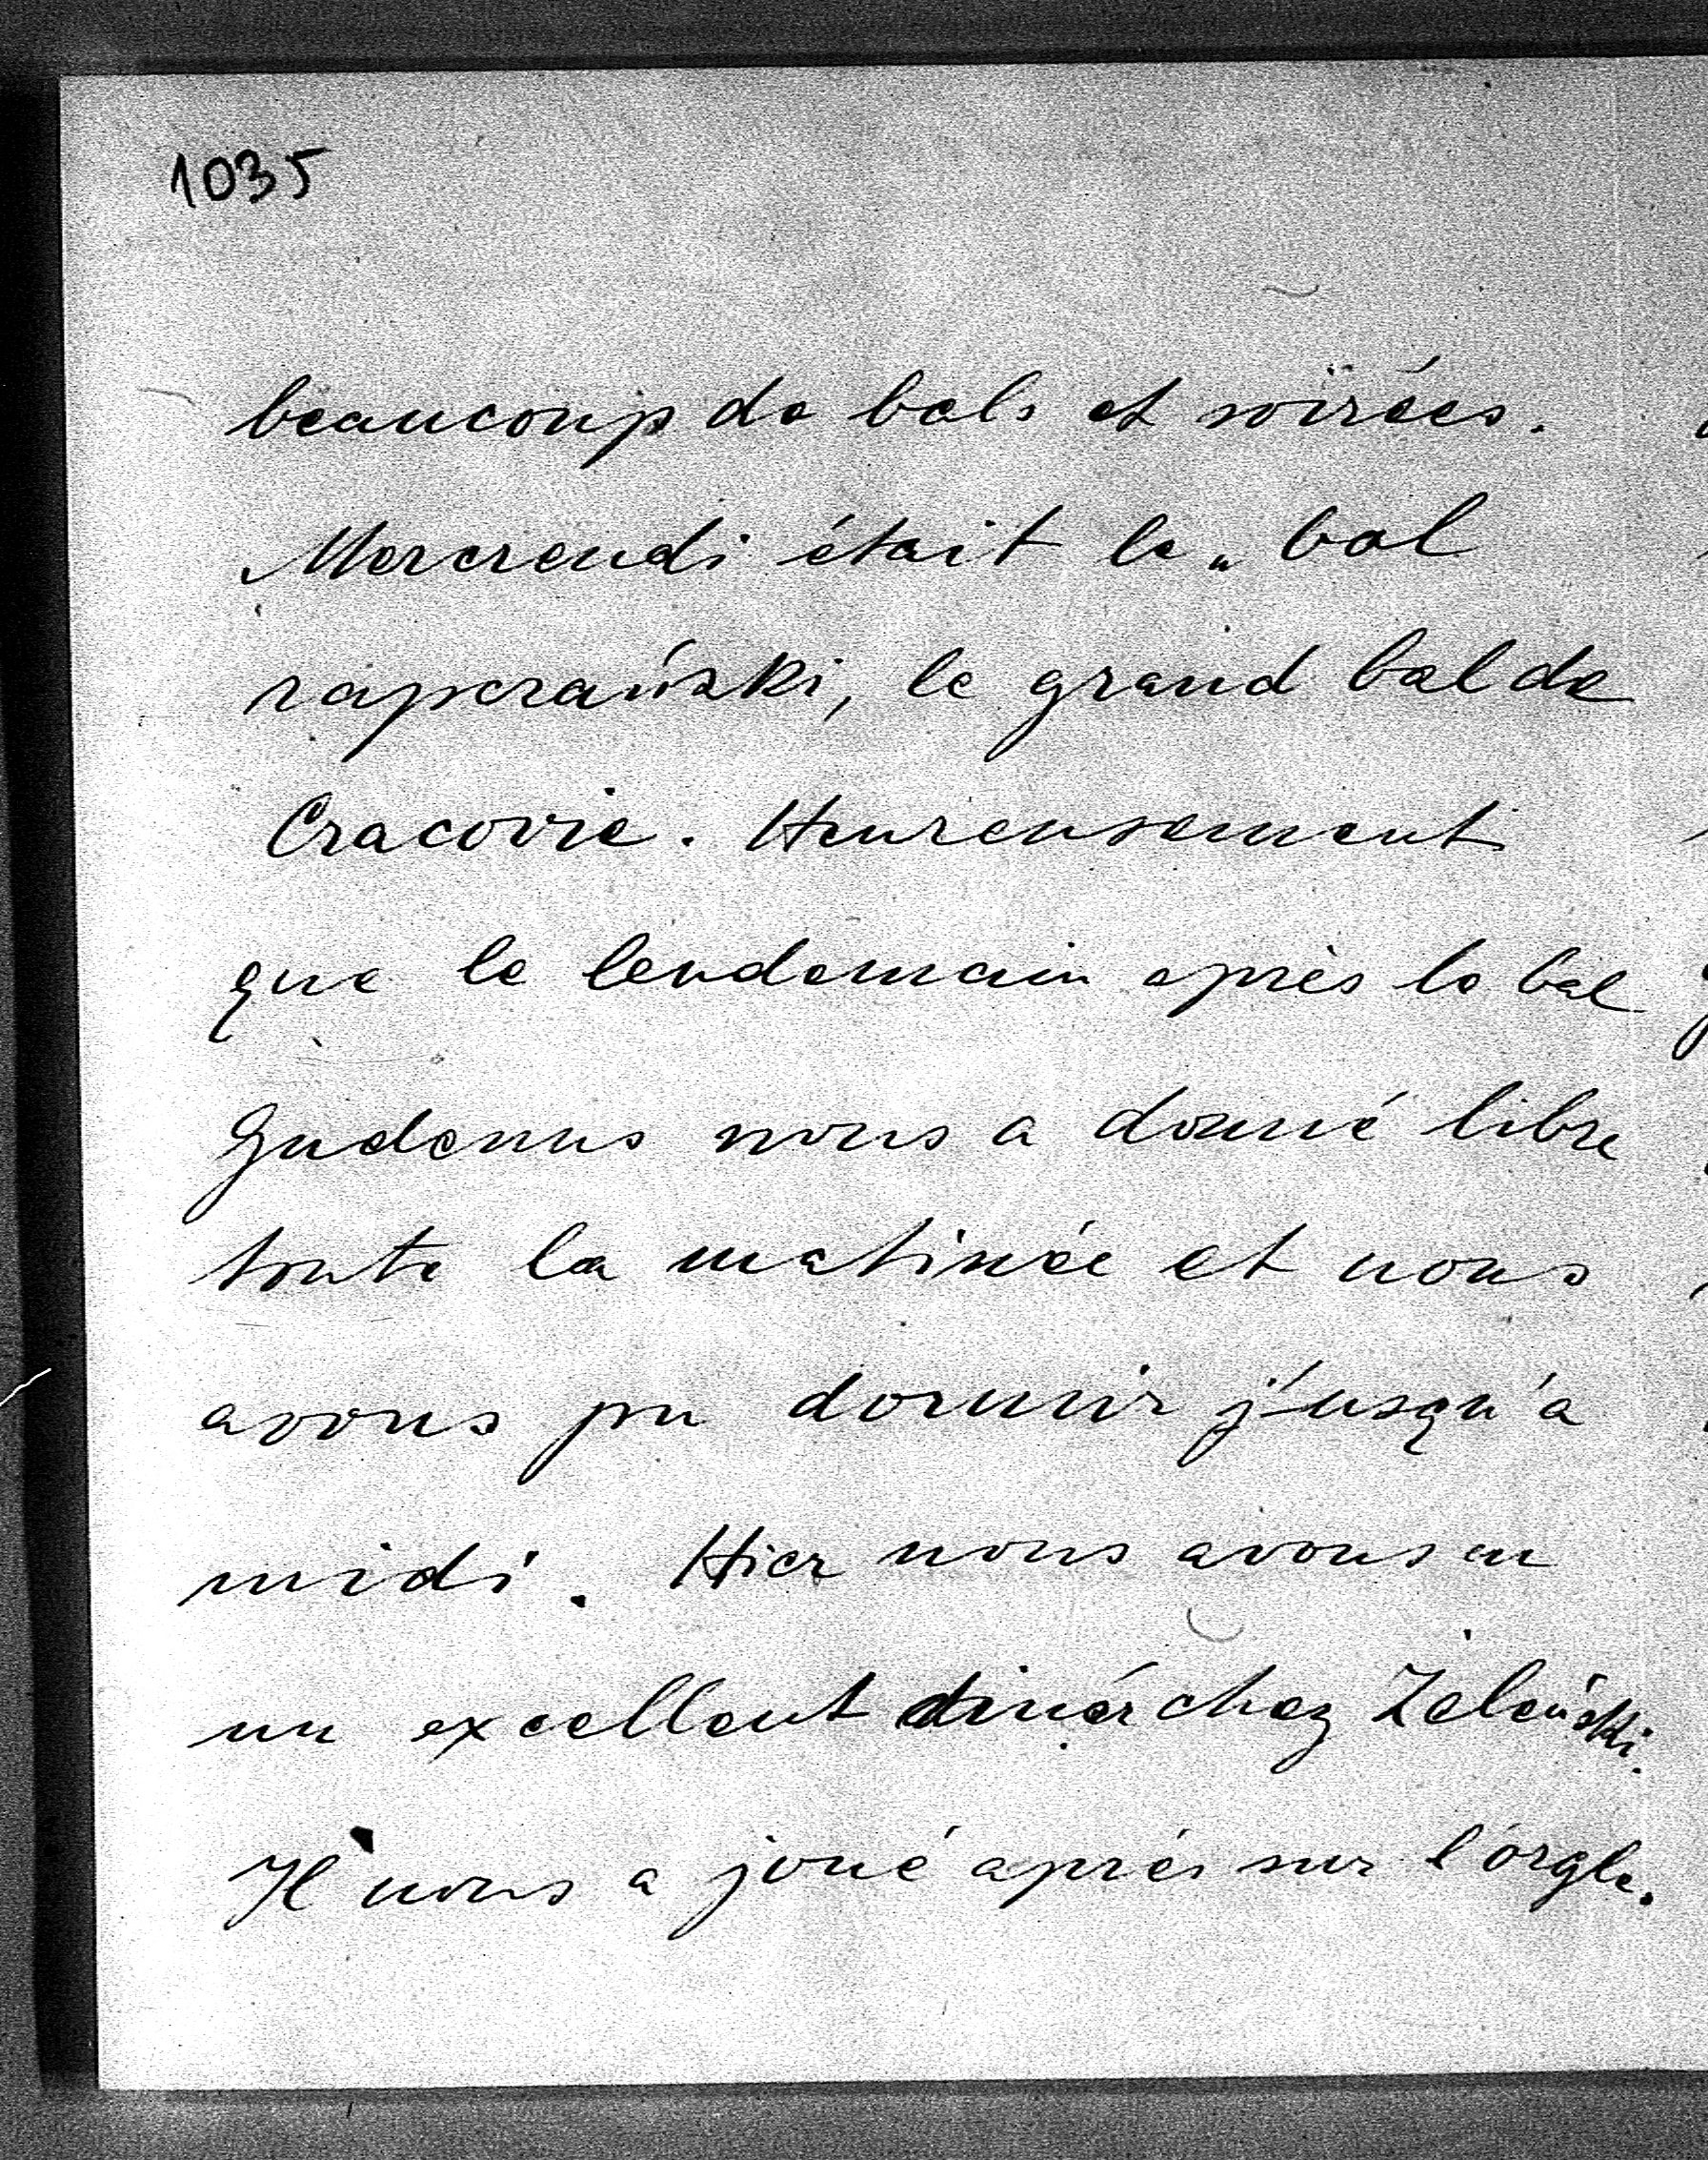 1035
beaucoup de bals et soirées.
Mercrendi était le „bal
rapczański, le grand bal de
Cracovie. Heureusement
que le lendemain après le bal
Gudenus nous a donné libre
toute la matinée et nous
avons pu dormir j'usqu'a
midi. Hier nous avons eu
un excellent dinér chez Żeleński.
Il nous a joué aprés sur l'órgle.